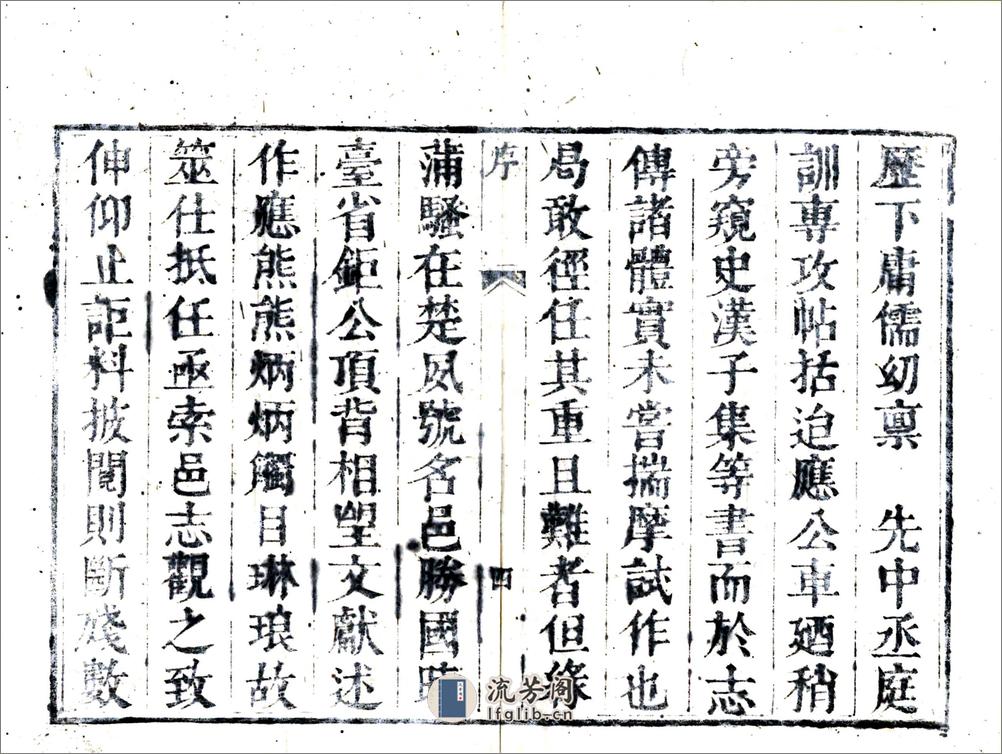 歷下庸儒幼禀　先中丞庭
訓專攻帖括迨應公車廼稍
旁窺史漢子集等書而於志
傳諸體實未嘗揣摩試作也
局敢徑任其重且難者但緣
序
四
蒲騷在楚夙號名邑勝國時
臺省鉅公項背相望文獻述
作應熊熊炳炳觸目琳琅故
筮仕抵任亟索邑志觀之致
伸仰止詎料披閱則斷殘數
流芳阁
lfglib.cn